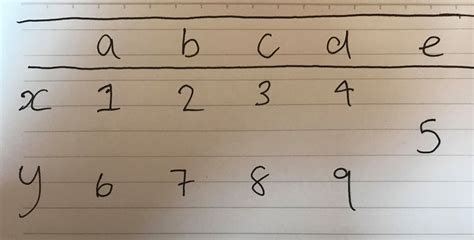 a b c d e
x 1 2 3 4
5
y 6 7 8 9